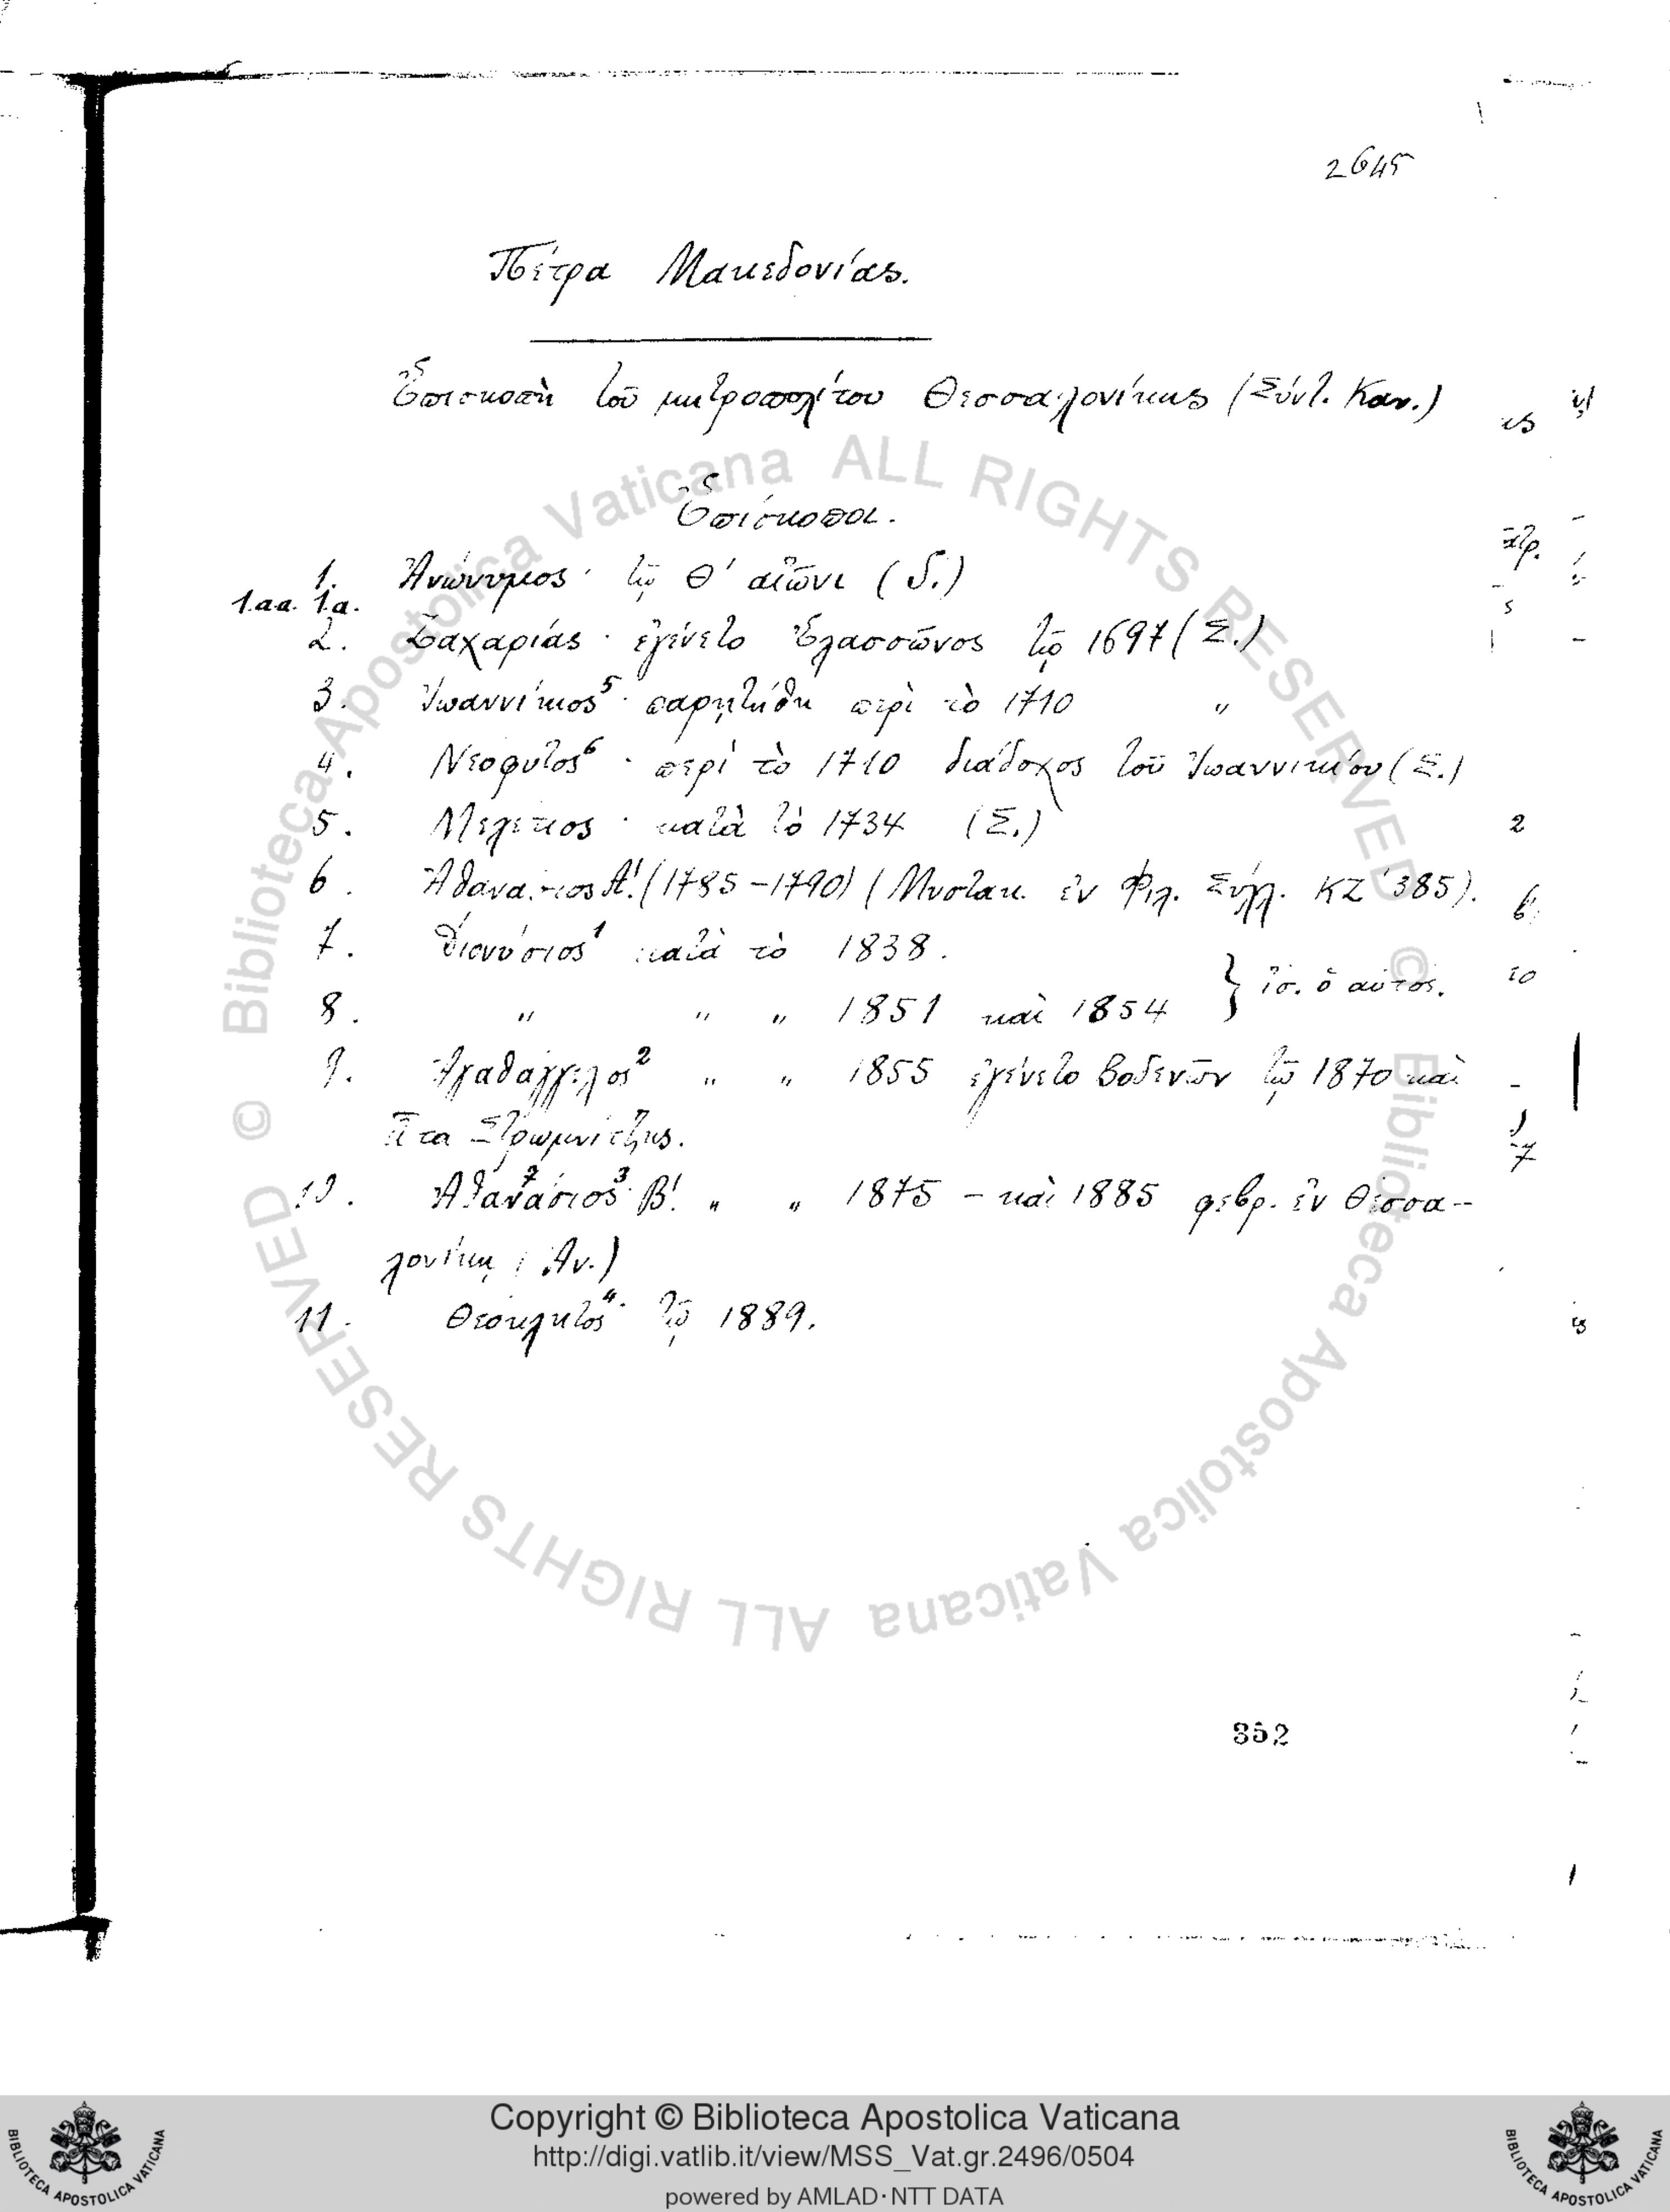 2645
Πέτρα Μακεδονίας.
Ἐπισκοπὴ τοῦ μητροπολίτου Θεσσαλονίκης (Σύντ. Καν.)
Ἐπίσκοποι.
1. Ἀνώνυμος· τῷ Θ' αἰῶνι (S.)
1.αα. 1α.
2. Ζαχαρίας· ἐγένετο Ἐλασσῶνος τῷ 1697 (Σ.)
3. Ἰωαννίκιος⁵· παρῃτήθη περὶ τὸ 1710 "
4. Νεόφυτος⁶· περὶ τὸ 1710 διάδοχος τοῦ Ἰωαννικίου (Σ.)
5. Μελέτιος· κατὰ τὸ 1734 (Σ.)
6. Ἀθανάσιος Α'. (1785-1790) (Μυστακ. ἐν Φιλ. Σύλλ. ΚΖ' 385).
7. Διονύσιος¹ κατὰ τὸ 1838.
} ἴσ. ὁ αὐτός.
8. " " " 1851 καὶ 1854
9. Ἀγαθάγγελος² " " 1855 ἐγένετο Βοδενῶν τῷ 1870 καὶ
εἶτα Στρωμνίτζης.
10. Ἀθανάσιος⁷ ³· Β'. " " 1875 – καὶ 1885 φεβρ. ἐν Θεσσα-
λονίκῃ (Ἀν.)
11. Θεόκλητος⁴· τῷ 1889.
352
© Biblioteca Apostolica Vaticana ALL RIGHTS RESERVED
© Biblioteca Apostolica Vaticana ALL RIGHTS RESERVED
BIBLIOTECA APOSTOLICA VATICANA
Copyright © Biblioteca Apostolica Vaticana
http://digi.vatlib.it/view/MSS_Vat.gr.2496/0504
powered by AMLAD·NTT DATA
BIBLIOTECA APOSTOLICA VATICANA